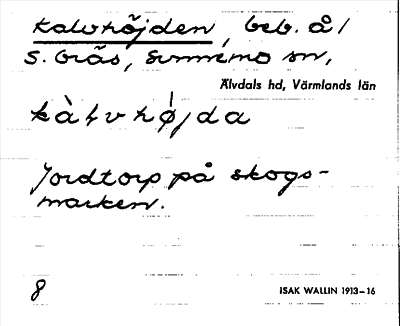 Kalvhöjden, beb. å/
S. Gräs, Sunnemo sn,
Älvdals hd, Värmlands län
kàɫvhø̀jda
Jordtorp på skogs-
marken.
8 ISAK WALLIN 1913–16